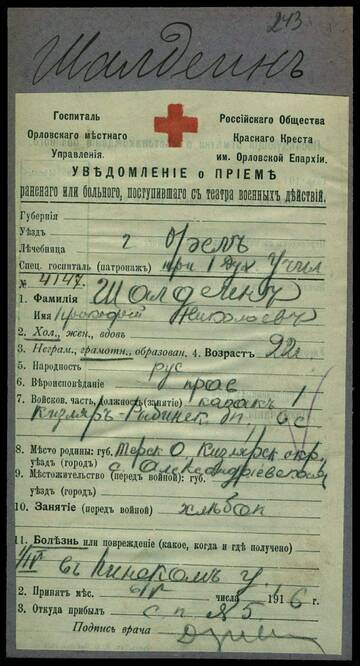 243
Шалдеинъ
Госпиталь
Орловскаго мѣстнаго
Управленія.
Россійскаго Общества
Краснаго Креста
им. Орловской Епархіи.
УВѢДОМЛЕНІЕ о ПРІЕМѢ
раненаго или больного, поступившаго съ театра военныхъ дѣйствій.
Губернія
Уѣздъ
Лѣчебница г Орелъ
Спец. госпиталь (патронажъ) при 1 Дух Учил
№ 4147.
1. Фамилія Шалдеинъ
Имя Прокофій Николаевъ
2. Хол., жен., вдовъ
3. Неграм., грамотн., образован. 4. Возрастъ 22г
5. Народность рус
6. Вѣроисповѣданіе прав
7. Войсков. часть, Должность (званіе) казакъ 1
Кизляръ-Гребенск. п. 6 с
8. Мѣсто родины: губ. Терск О Кизлярск окр.
уѣздъ (городъ) с Александріевской
9. Мѣстожительство (передъ войной): губ.
уѣздъ (городъ)
10. Занятіе (передъ войной) хлѣбоп
11. Болѣзнь или поврежденіе (какое, когда и гдѣ получено)
въ Пинскомъ у.
2. Принятъ мѣс. числа 1916 г.
3. Откуда прибылъ с п № 5
Подпись врача